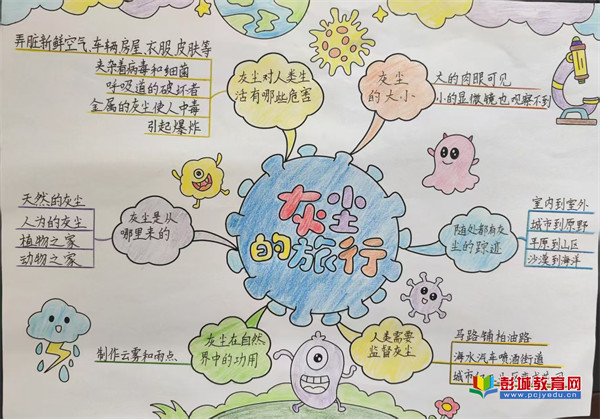 灰尘的旅行
弄脏新鲜空气、车辆、房屋、衣服、皮肤等
夹杂着病毒和细菌
呼吸道的破坏者
金属的灰尘使人中毒
引起爆炸
灰尘对人类生
活有哪些危害
灰尘
的大小
大的肉眼可见
小的显微镜也观察不到
天然的灰尘
人为的灰尘
植物之家
动物之家
灰尘是从
哪里来的
随处都有灰
尘的踪迹
室内到室外
城市到原野
平原到山区
沙漠到海洋
制作云雾和雨点
灰尘在自然
界中的功用
人类需要
监督灰尘
马路铺柏油路
海水汽车喷洒街道
城市
彭城教育网
www.pcjyedu.cn